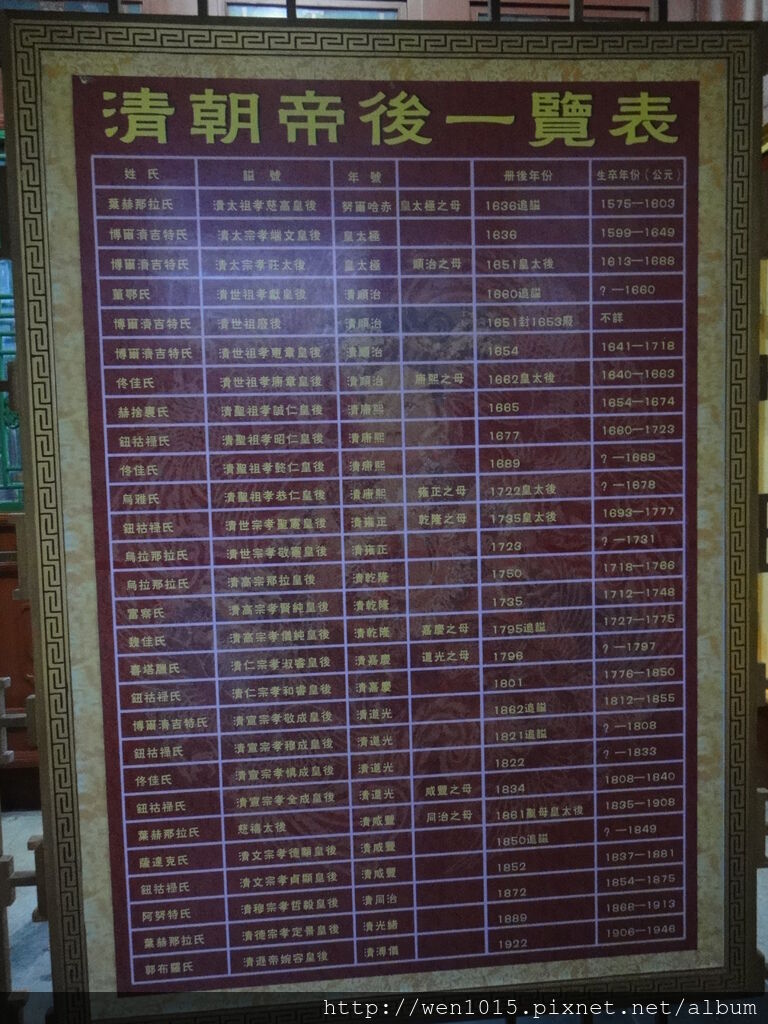 清朝帝後一覽表
姓 氏 諡 號 年 號 册後年份 生卒年份（公元）
葉赫那拉氏 清太祖孝慈高皇後 努爾哈赤 皇太極之母 1636追諡 1575—1603
博爾濟吉特氏 清太宗孝端文皇後 皇太極 1636 1599—1649
博爾濟吉特氏 清太宗孝莊太後 皇太極 順治之母 1651皇太後 1613—1688
董鄂氏 清世祖孝獻皇後 清順治 1660追諡 ？—1660
博爾濟吉特氏 清世祖廢後 清順治 1651封1653廢 不詳
博爾濟吉特氏 清世祖孝惠章皇後 清順治 1654 1641—1718
佟佳氏 清世祖孝康章皇後 清順治 康熙之母 1662皇太後 1640—1663
赫捨裏氏 清聖祖孝誠仁皇後 清康熙 1665 1654—1674
鈕祜祿氏 清聖祖孝昭仁皇後 清康熙 1677 1660—1723
佟佳氏 清聖祖孝懿仁皇後 清康熙 1689 ？—1689
烏雅氏 清聖祖孝恭仁皇後 清康熙 雍正之母 1722皇太後 ？—1678
鈕祜祿氏 清世宗孝聖憲皇後 清雍正 乾隆之母 1735皇太後 1693—1777
烏拉那拉氏 清世宗孝敬憲皇後 清雍正 1723 ？—1731
烏拉那拉氏 清高宗那拉皇後 清乾隆 1750 1718—1766
富察氏 清高宗孝賢純皇後 清乾隆 1735 1712—1748
魏佳氏 清高宗孝儀純皇後 清乾隆 嘉慶之母 1795追諡 1727—1775
喜塔臘氏 清仁宗孝淑睿皇後 清嘉慶 道光之母 1796 ？—1797
鈕祜祿氏 清仁宗孝和睿皇後 清嘉慶 1801 1776—1850
博爾濟吉特氏 清宣宗孝敬成皇後 清道光 1862追諡 1812—1855
鈕祜祿氏 清宣宗孝穆成皇後 清道光 1821追諡 ？—1808
佟佳氏 清宣宗孝慎成皇後 清道光 1822 ？—1833
鈕祜祿氏 清宣宗孝全成皇後 清道光 咸豐之母 1834 1808—1840
葉赫那拉氏 慈禧太後 清咸豐 同治之母 1861聖母皇太後 1835—1908
薩達克氏 清文宗孝德顯皇後 清咸豐 1850追諡 ？—1849
鈕祜祿氏 清文宗孝貞顯皇後 清咸豐 1852 1837—1881
阿努特氏 清穆宗孝哲毅皇後 清同治 1872 1854—1875
葉赫那拉氏 清德宗孝定景皇後 清光緒 1889 1868—1913
郭布羅氏 清遜帝婉容皇後 清溥儀 1922 1906—1946
http://wen1015.pixnet.net/album